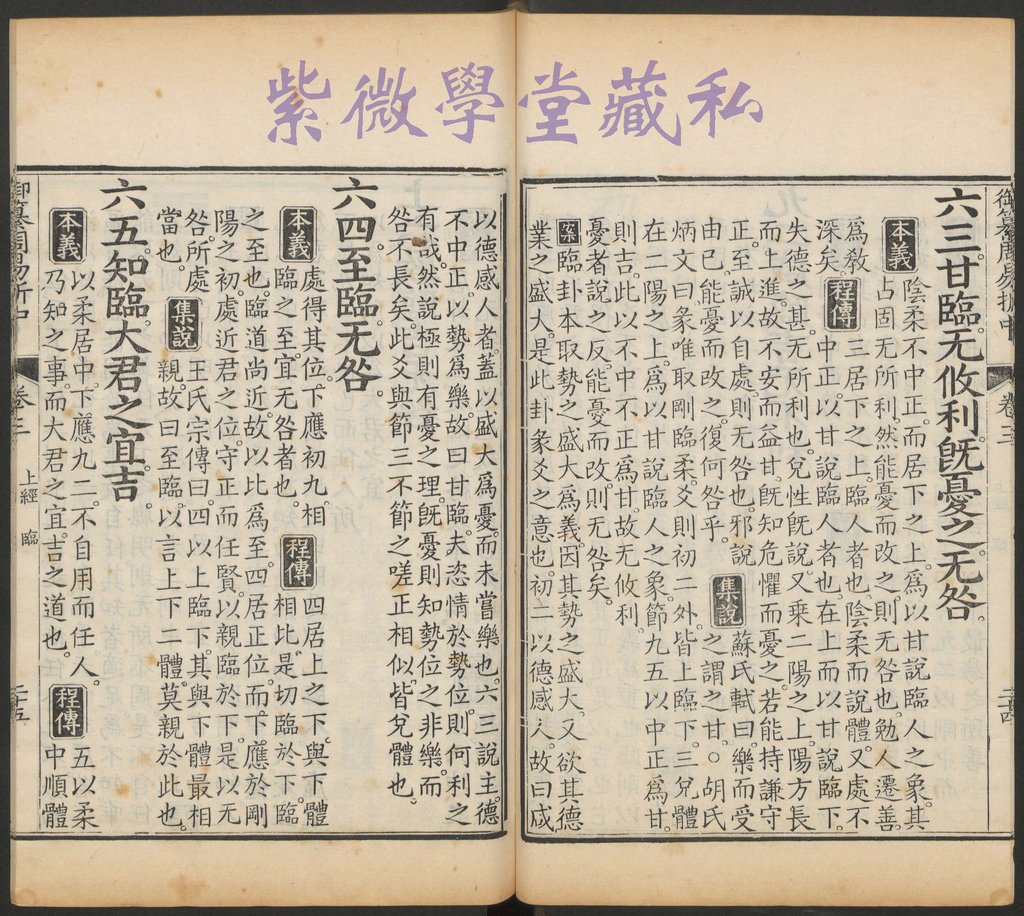 紫微學堂藏私
御纂周易折中 卷三 二十四
六三甘臨无攸利旣憂之无咎。
本義 陰柔不中正而居下之上。爲以甘說臨人之象。其
占固无所利。然能憂而改之則无咎也。勉人遷善
爲敎
深矣。 程傳 三居下之上。臨人者也。陰柔而說體。又處不
中正。以甘說臨人者也。在上而以甘說臨下。
失德之甚。无所利也。兌性旣說。又乘二陽之上。陽方長
而上進。故不安而益甘。旣知危懼而憂之。若能持謙守
正。至誠以自處。則无咎也。邪說
由己。能憂而改之。復何咎乎。 集說 蘇氏軾曰。樂而受
之謂之甘。○胡氏
炳文曰。彖唯取剛臨柔。爻則初二外。皆上臨下。三兌體
在二陽之上。爲以甘說臨人之象。節九五以中正爲甘。
則吉。此以不中不正爲甘。故无攸利。
憂者說之反。能憂而改。則无咎矣。
案 臨卦本取勢之盛大爲義。因其勢之盛大。又欲其德
業之盛大。是此卦彖爻之意也。初二以德感人。故曰咸
以德感人者。蓋以盛大爲憂。而未嘗樂也。六三說主。德
不中正。以勢爲樂。故曰甘臨。夫恣情於勢位。則何利之
有哉。然說極則有憂之理。旣憂則知勢位之非樂。而
咎不長矣。此爻與節三不節之嗟正相似。皆兌體也。
六四至臨无咎。
本義 處得其位。下應初九。相
臨之至。宜无咎者也。 程傳 四居上之下。與下體
相比。是切臨於下。臨
之至也。臨道尚近。故以比爲至。四居正位。而下應於剛
陽之初。處近君之位。守正而任賢。以親臨於下。是以无
咎。所處
當也。 集說 王氏宗傳曰。四以上臨下。其與下體最相
親。故曰至臨。以言上下二體。莫親於此也。
六五知臨大君之宜吉。
本義 以柔居中。下應九二。不自用而任人。
乃知之事。而大君之宜。吉之道也。 程傳 五以柔
中順體
御纂周易折中 卷三 上經 臨 二十五